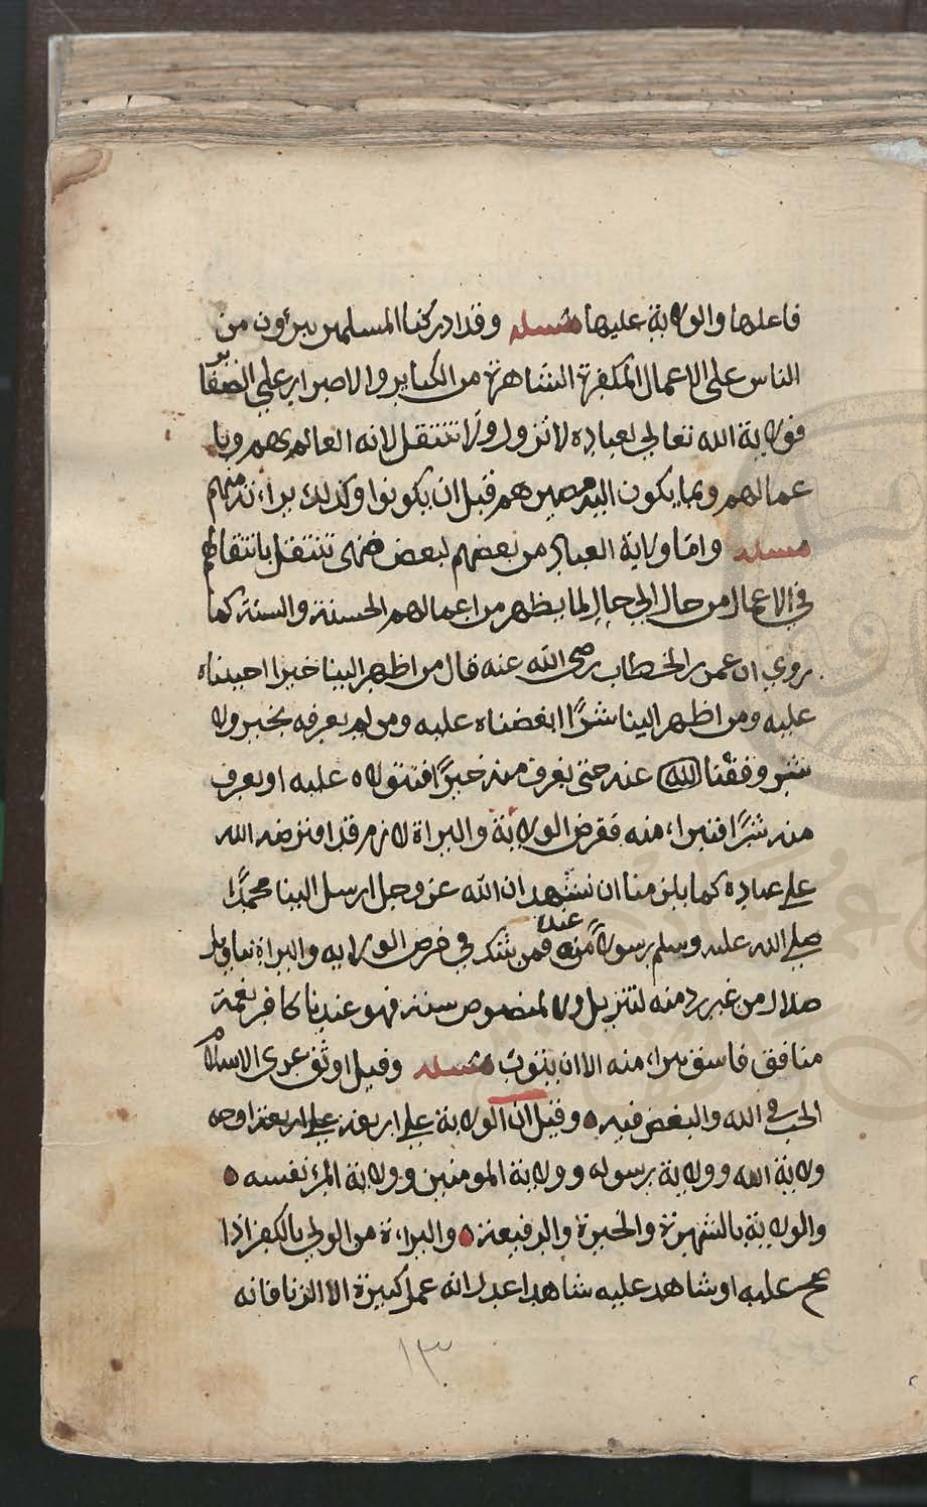 فاعلها والولاية عليها مسئله وقد ادركنا المسلمين يبرؤن من
الناس على الاعمال المكفرة الشاهرة من الكباير والاصرار على الصفا
فولاية الله تعالى لعباده لا تزول ولا تنتقل لانه العالم بهم وبا
عمالهم وبما يكون اليه مصيرهم قبل ان يكونوا وكذلك براءته منهم
مسئله واما ولاية العباد من بعضهم لبعض فهى تنتقل بانتقالهم
في الاعمال من حال الي حال لما يظهر من اعمالهم الحسنة والسيئة كما
روي ان عمر بن الخطاب رضي الله عنه قال من اظهر الينا خيرا احببناه
عليه ومن اظهر الينا شرًا ابغضناه عليه ومن لم يعرفه بخير ولا
شر وقفنا لله عنه حتى يعرف منه خيرًا فنتولاه عليه او يعرف
منه شرًا فنبراء منه ففرض الولاية والبراة لازم قد افترضه الله
علي عباده كما يلزمنا ان نشهد ان الله عز وجل ارسل الينا محمدًا
صلي الله عليه وسلم رسولاً منه عنده فمن شك في فرض الولايه والبراة بتاويل
ضلال من غير رد منه لتنزيل ولا لمنصوص سنة فهو عندنا كافر نعمة
منافق فاسق يبراء منه الا ان يتوب مسئله وقيل اوثق عرى الاسلام
الحب في الله والبغض فيه وقيل ان الولاية علي اربعة علي اربعة اوجه
ولاية الله وولاية رسوله وولاية المومنين وولاية المرء نفسه
والولاية بالشهرة والخبرة والرفيعة والبراءة من الولي بالكفر اذا
صح عليه او شاهد عليه شاهدا عدل انه عمل كبيرة الا الزنا فانه
١٣